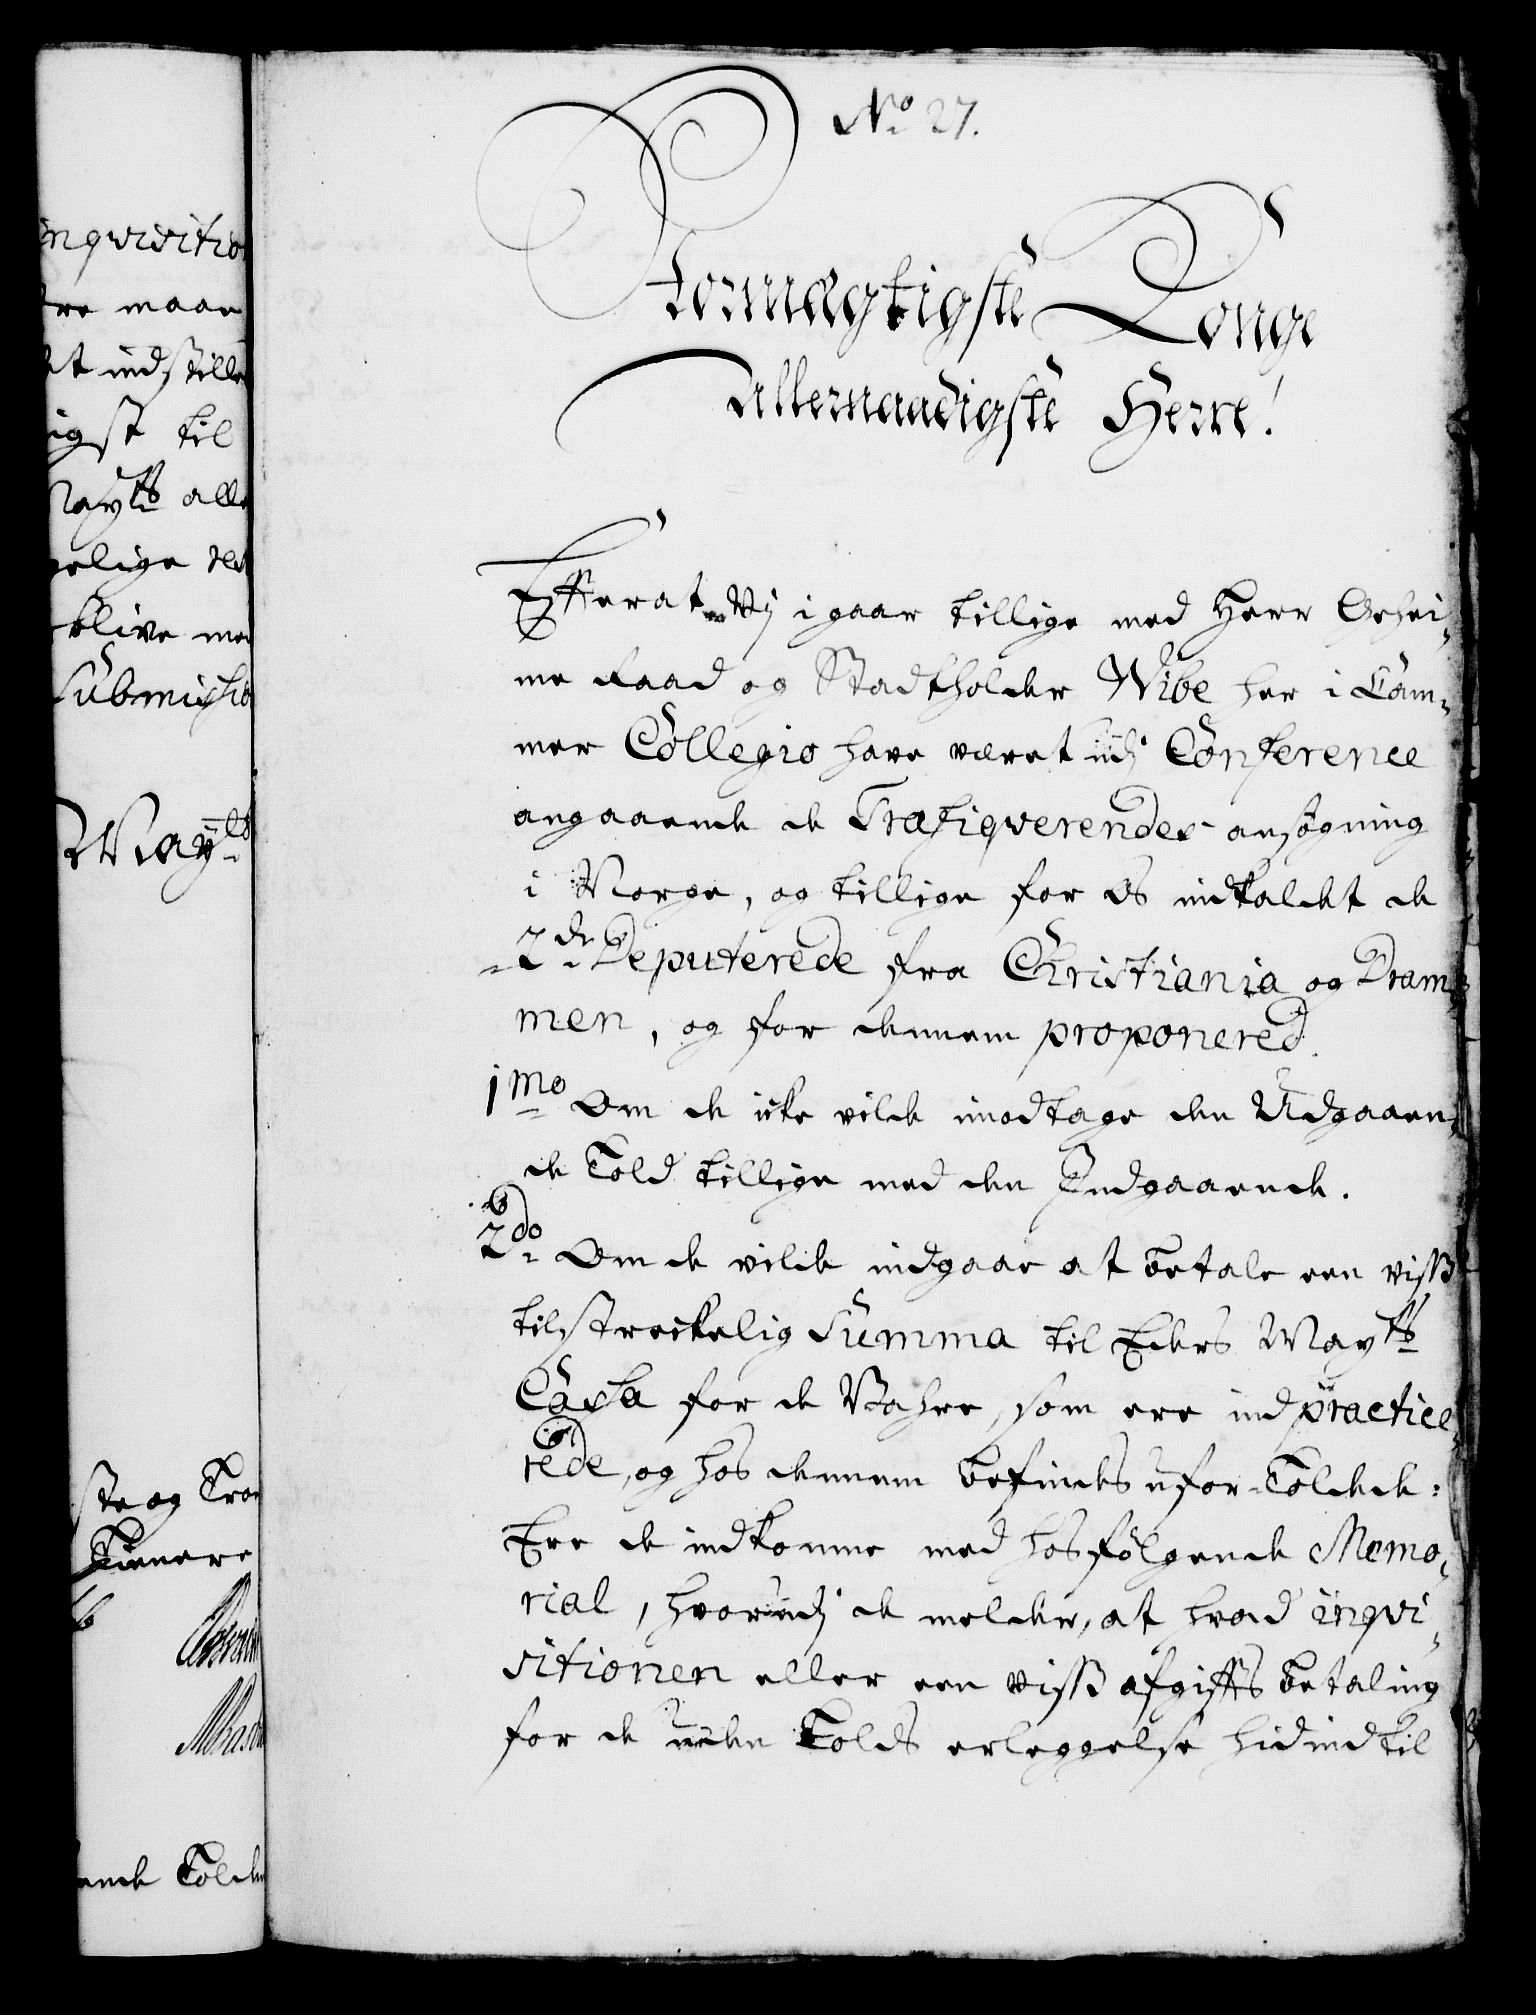 No 27.
Stormægtigste Konge
Allernaadigste Herre!
Efterat Vij i gaar tillige med Herr Gehei-
me Raad og Stadtholder Wibe her i Cam-
mer Collegio have været udj Conference
angaaende de Trafiqverendes ansøgning
i Norge, og tillige for os indkaldet de
2de Deputerede fra Christiania og Dram-
men, og for dennem proponered.
1mo Om de icke vilde imodtage den Udgaaen-
de Told tillige med den Indgaaende.
2do Om de vilde indgaae at betale een visß
tilstreckelig Summa til Eders Mayts
Cassa for de Vahre, som ere indpractice-
rede, og hos dennem befindes ufor-Toldede:
Ere de indkomme med hosfölgende Memo-
rial, hvorudj de melder, at hvad inqvi-
sitionen eller een visß afgiffts betaling
for de uden Tolds erleggelse hidindtil
inqvisitio
re maae
et indstille
igst til
Mayts alle
elige
blive me
Submissio
Mayts
ste og Troe
Tienere
ende Tolde